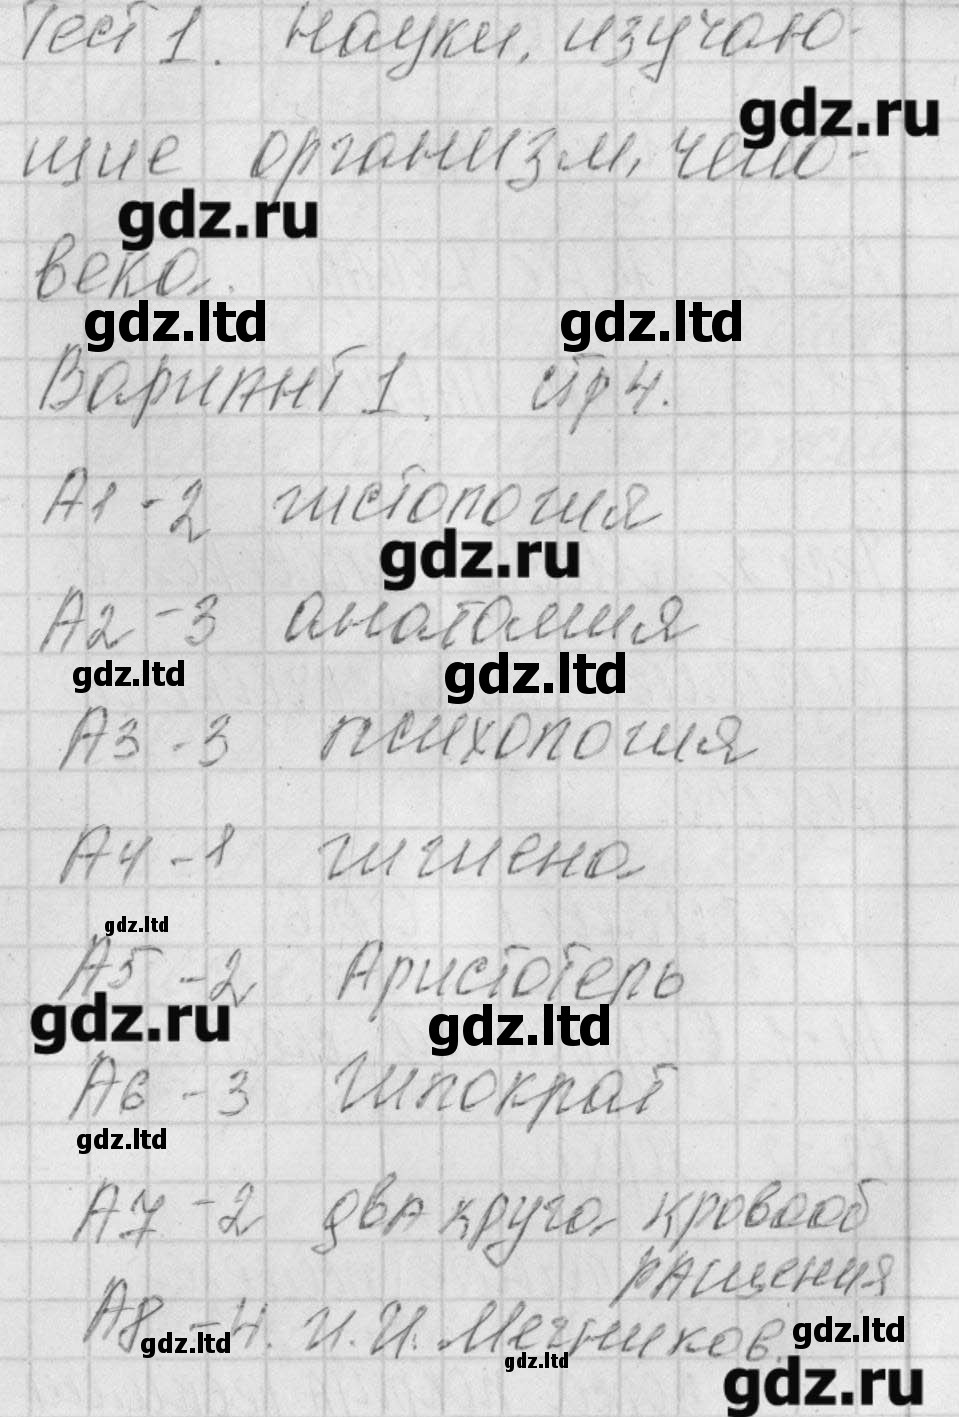 Тест 1. Науки, изучаю-
gdz.ru
щие организм, чело-
gdz.ru
века.
gdz.ltd gdz.ltd
Вариант 1. стр 4.
А1 - 2 гистология
gdz.ru
А2 - 3 анатомия
gdz.ltd gdz.ltd
А3 - 3 психология
А4 - 1 гигиена
gdz.ltd
А5 - 2 Аристотель
gdz.ru gdz.ltd
А6 - 3 Гиппократ
gdz.ltd
А7 - 2 два круга кровооб
ращения
А8 - 4. И. И. Мечников.
gdz.ltd gdz.ltd gdz.ltd
gdz.ru